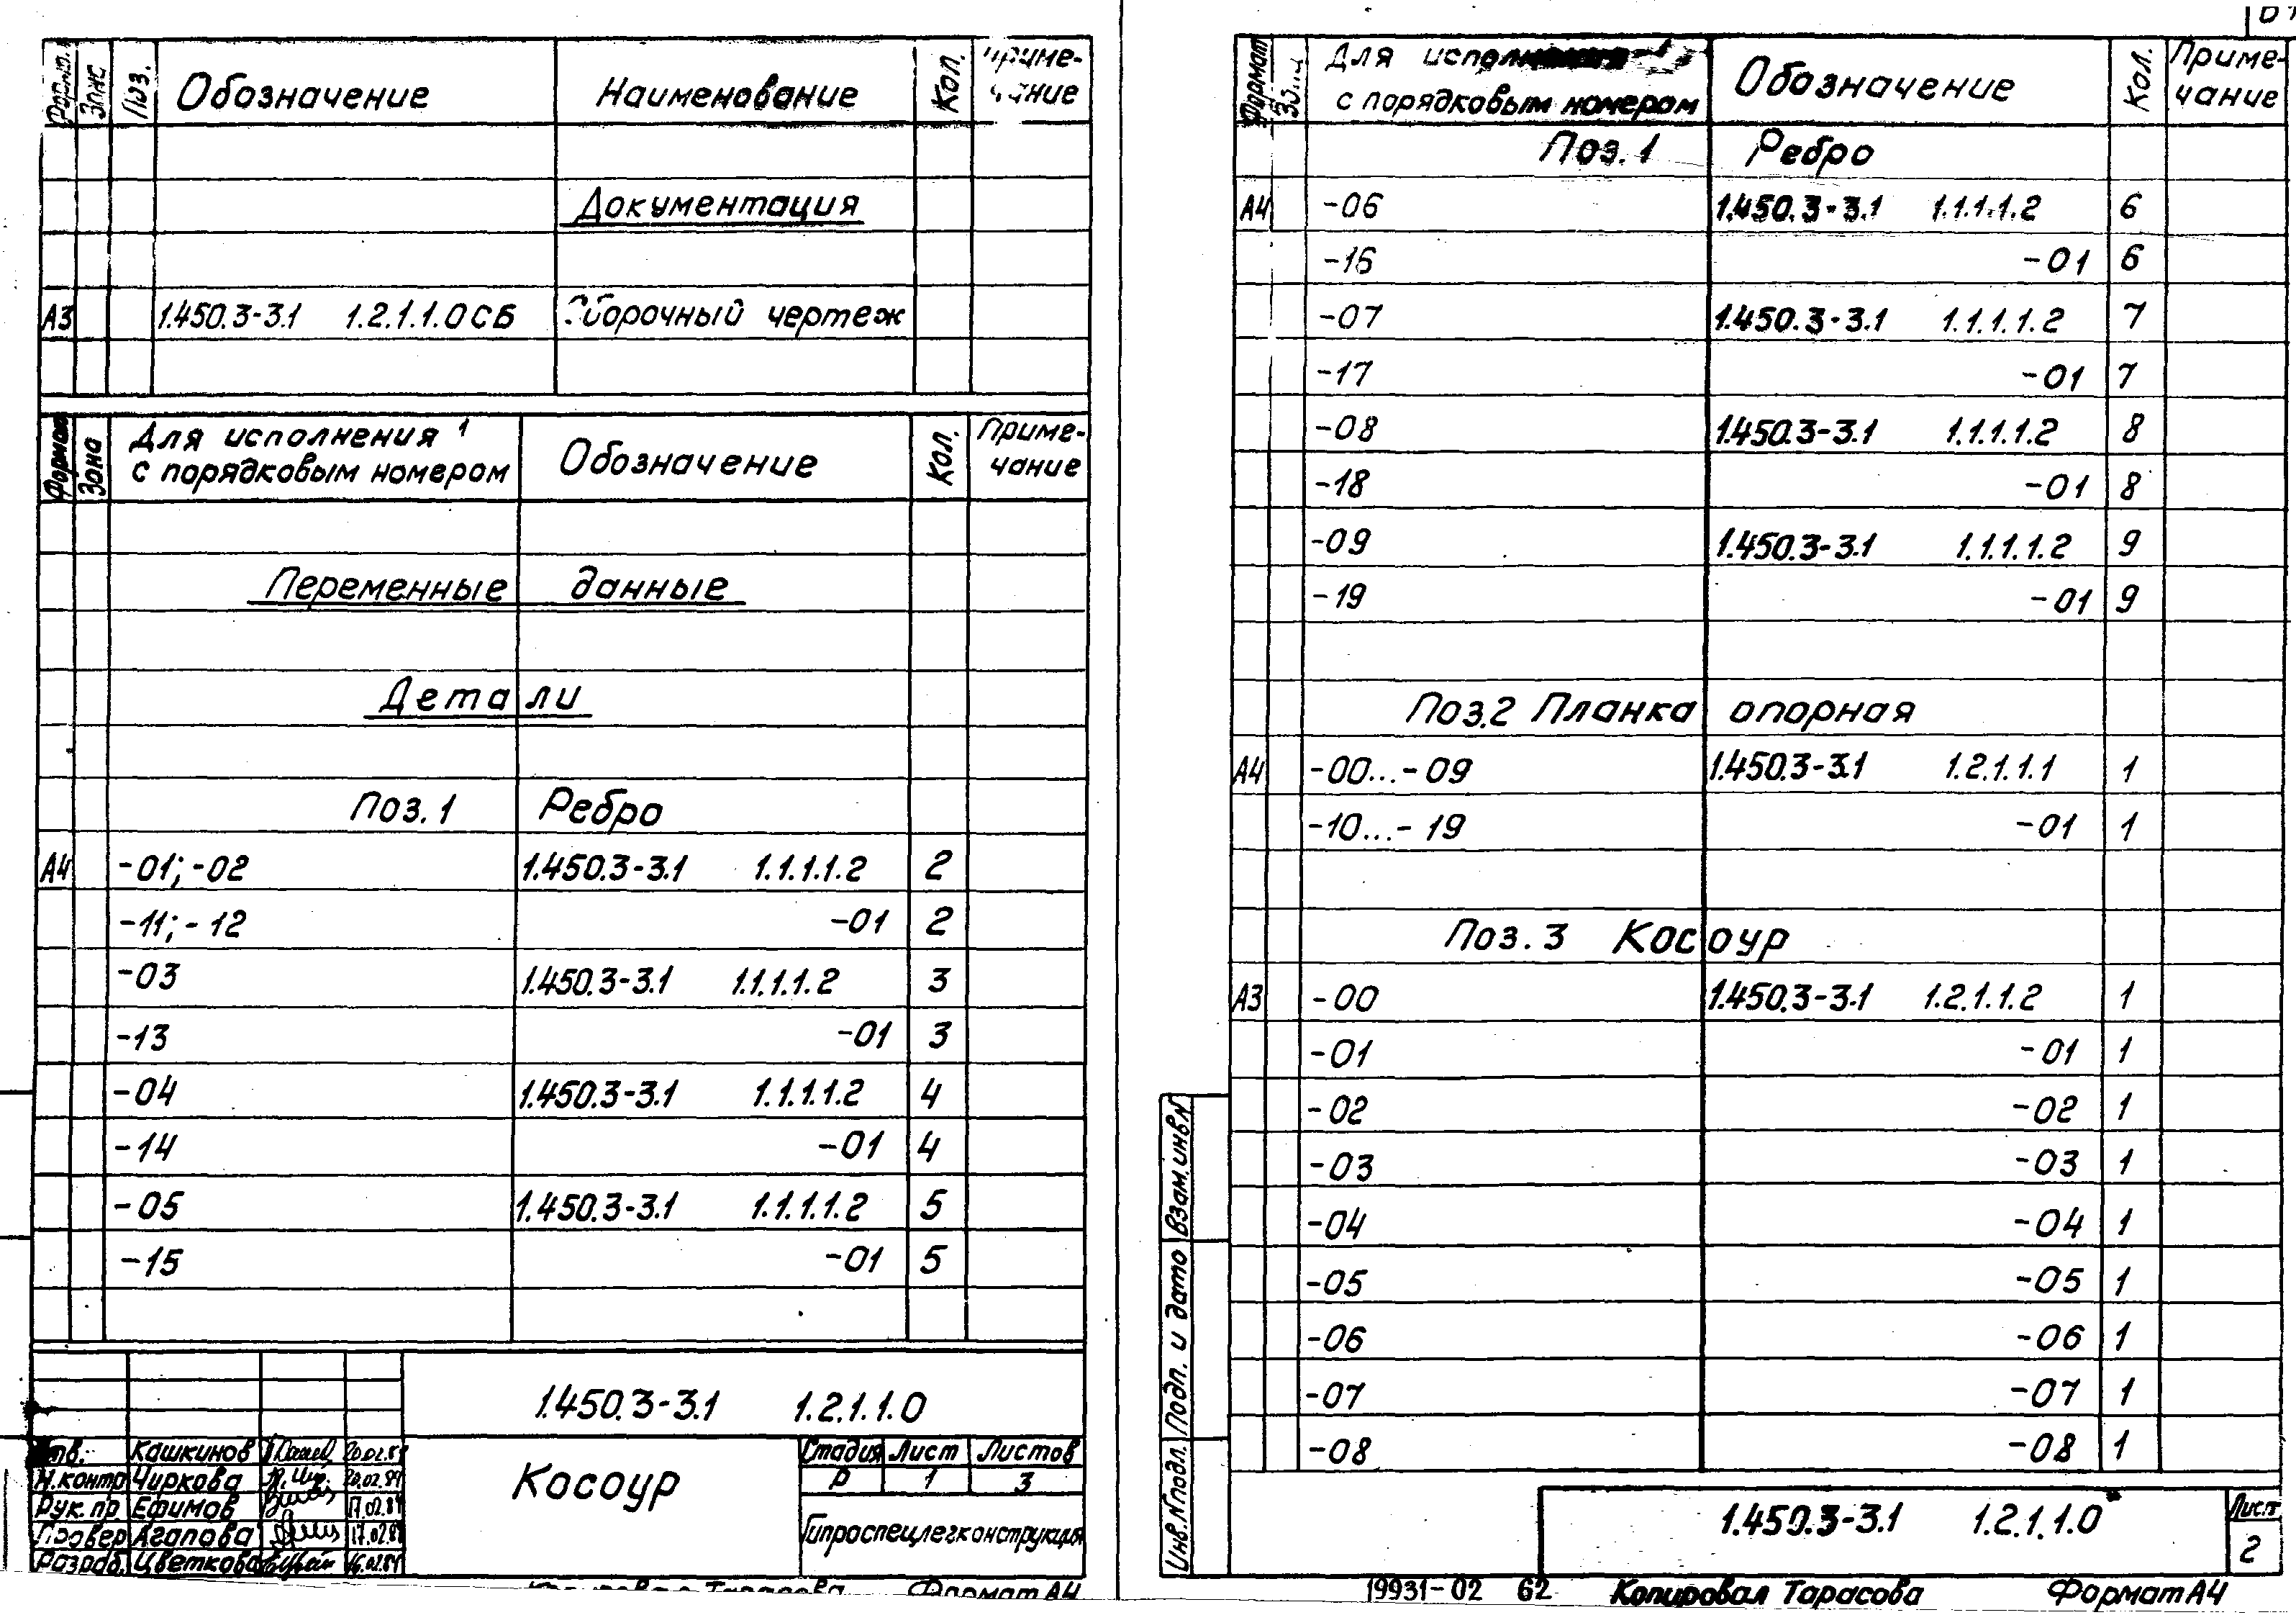 Зона Поз. Обозначение Наименование Кол. Приме-
чание
Документация
А3 1.450.3-3.1 1.2.1.1.0СБ Сборочный чертеж
Формат Зона Для исполнения 1 Обозначение Кол. Приме-
с порядковым номером чание
Переменные данные
Детали
Поз. 1 Ребро
А4 -01; -02 1.450.3-3.1 1.1.1.1.2 2
-11; -12 -01 2
-03 1.450.3-3.1 1.1.1.1.2 3
-13 -01 3
-04 1.450.3-3.1 1.1.1.1.2 4
-14 -01 4
-05 1.450.3-3.1 1.1.1.1.2 5
-15 -01 5
1.450.3-3.1 1.2.1.1.0
Кашкинов
Н.контр Чиркова 20.02.84
Рук.пр Ефимов 17.02.84
Провер Агапова 17.02.84
Разраб. Цветкова 16.02.84
Косоур
Стадия Лист Листов
Р 1 3
Гипроспецлегконструкция
Копировал Тарасова Формат А4
Формат Для исполнения Обозначение Кол. Приме-
с порядковым номером чание
Поз. 1 Ребро
А4 -06 1.450.3-3.1 1.1.1.1.2 6
-16 -01 6
-07 1.450.3-3.1 1.1.1.1.2 7
-17 -01 7
-08 1.450.3-3.1 1.1.1.1.2 8
-18 -01 8
-09 1.450.3-3.1 1.1.1.1.2 9
-19 -01 9
Поз.2 Планка опорная
А4 -00...-09 1.450.3-3.1 1.2.1.1.1 1
-10...-19 -01 1
Поз. 3 Косоур
А3 -00 1.450.3-3.1 1.2.1.1.2 1
-01 -01 1
-02 -02 1
-03 -03 1
-04 -04 1
-05 -05 1
-06 -06 1
-07 -07 1
-08 -08 1
Инв.№подл. Подп. и дата Взам.инв.№
1.450.3-3.1 1.2.1.1.0 Лист
2
19931-02 62 Копировал Тарасова Формат А4